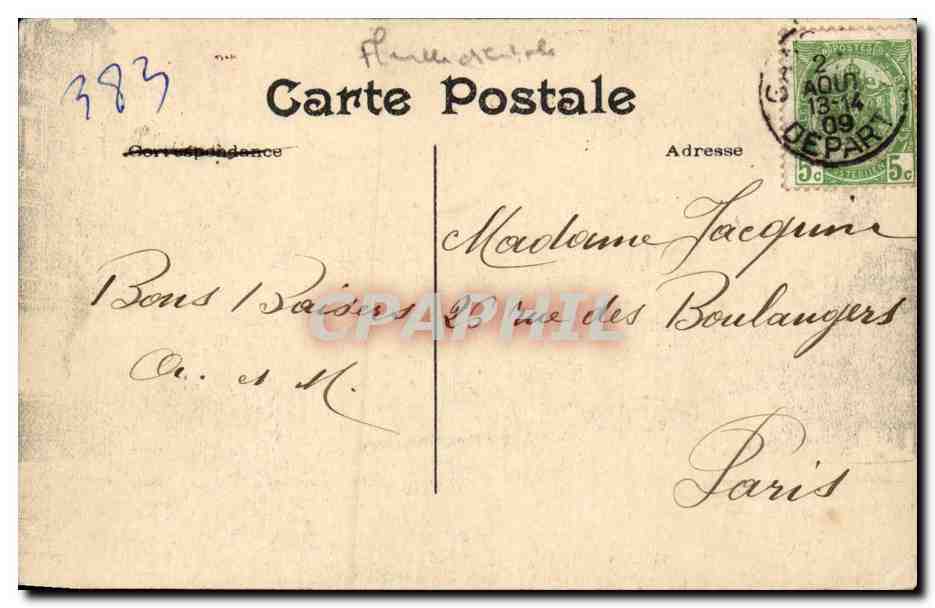 383
Carte Postale
Correspondance
Adresse
POSTES
2
AOUT
13-14
09
DEPART
5c 5c
Madame Jacquin
Bons Baisers
26 rue des Boulangers
A. et M.
Paris
CPAPHIL